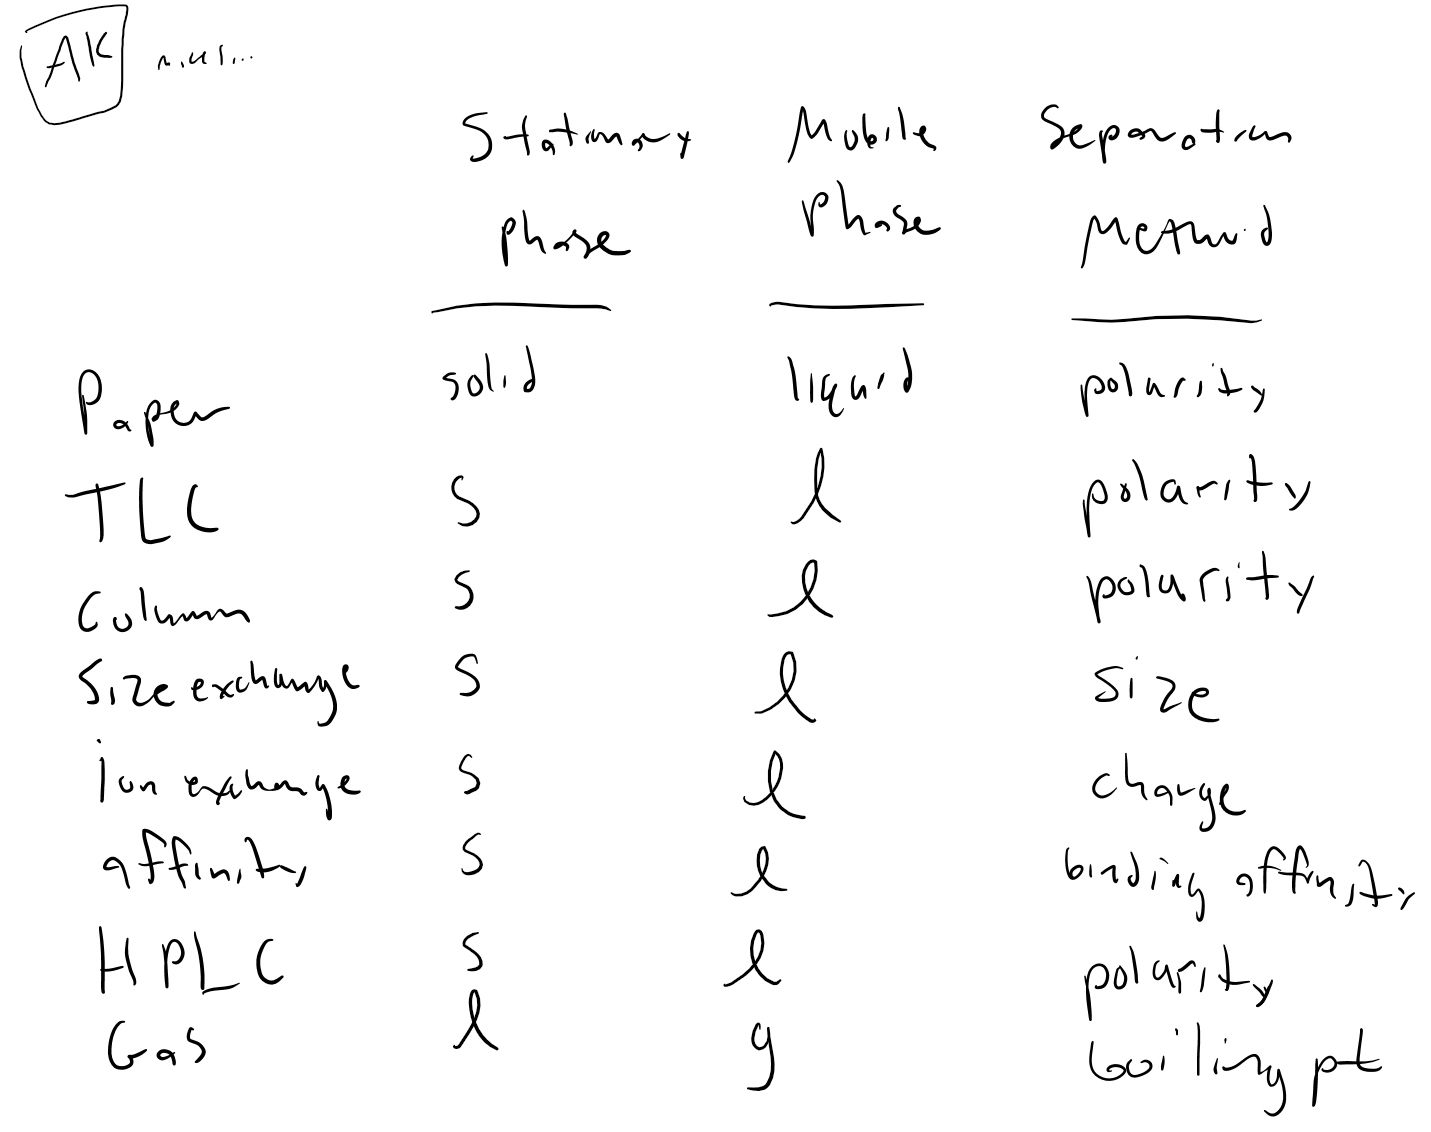 AK
Stationary Mobile Separation
Phase Phase Method
Paper solid liquid polarity
TLC s l polarity
Column s l polarity
Size exchange s l size
ion exchange s l charge
affinity s l binding affinity
HPLC s l polarity
Gas l g boiling pt